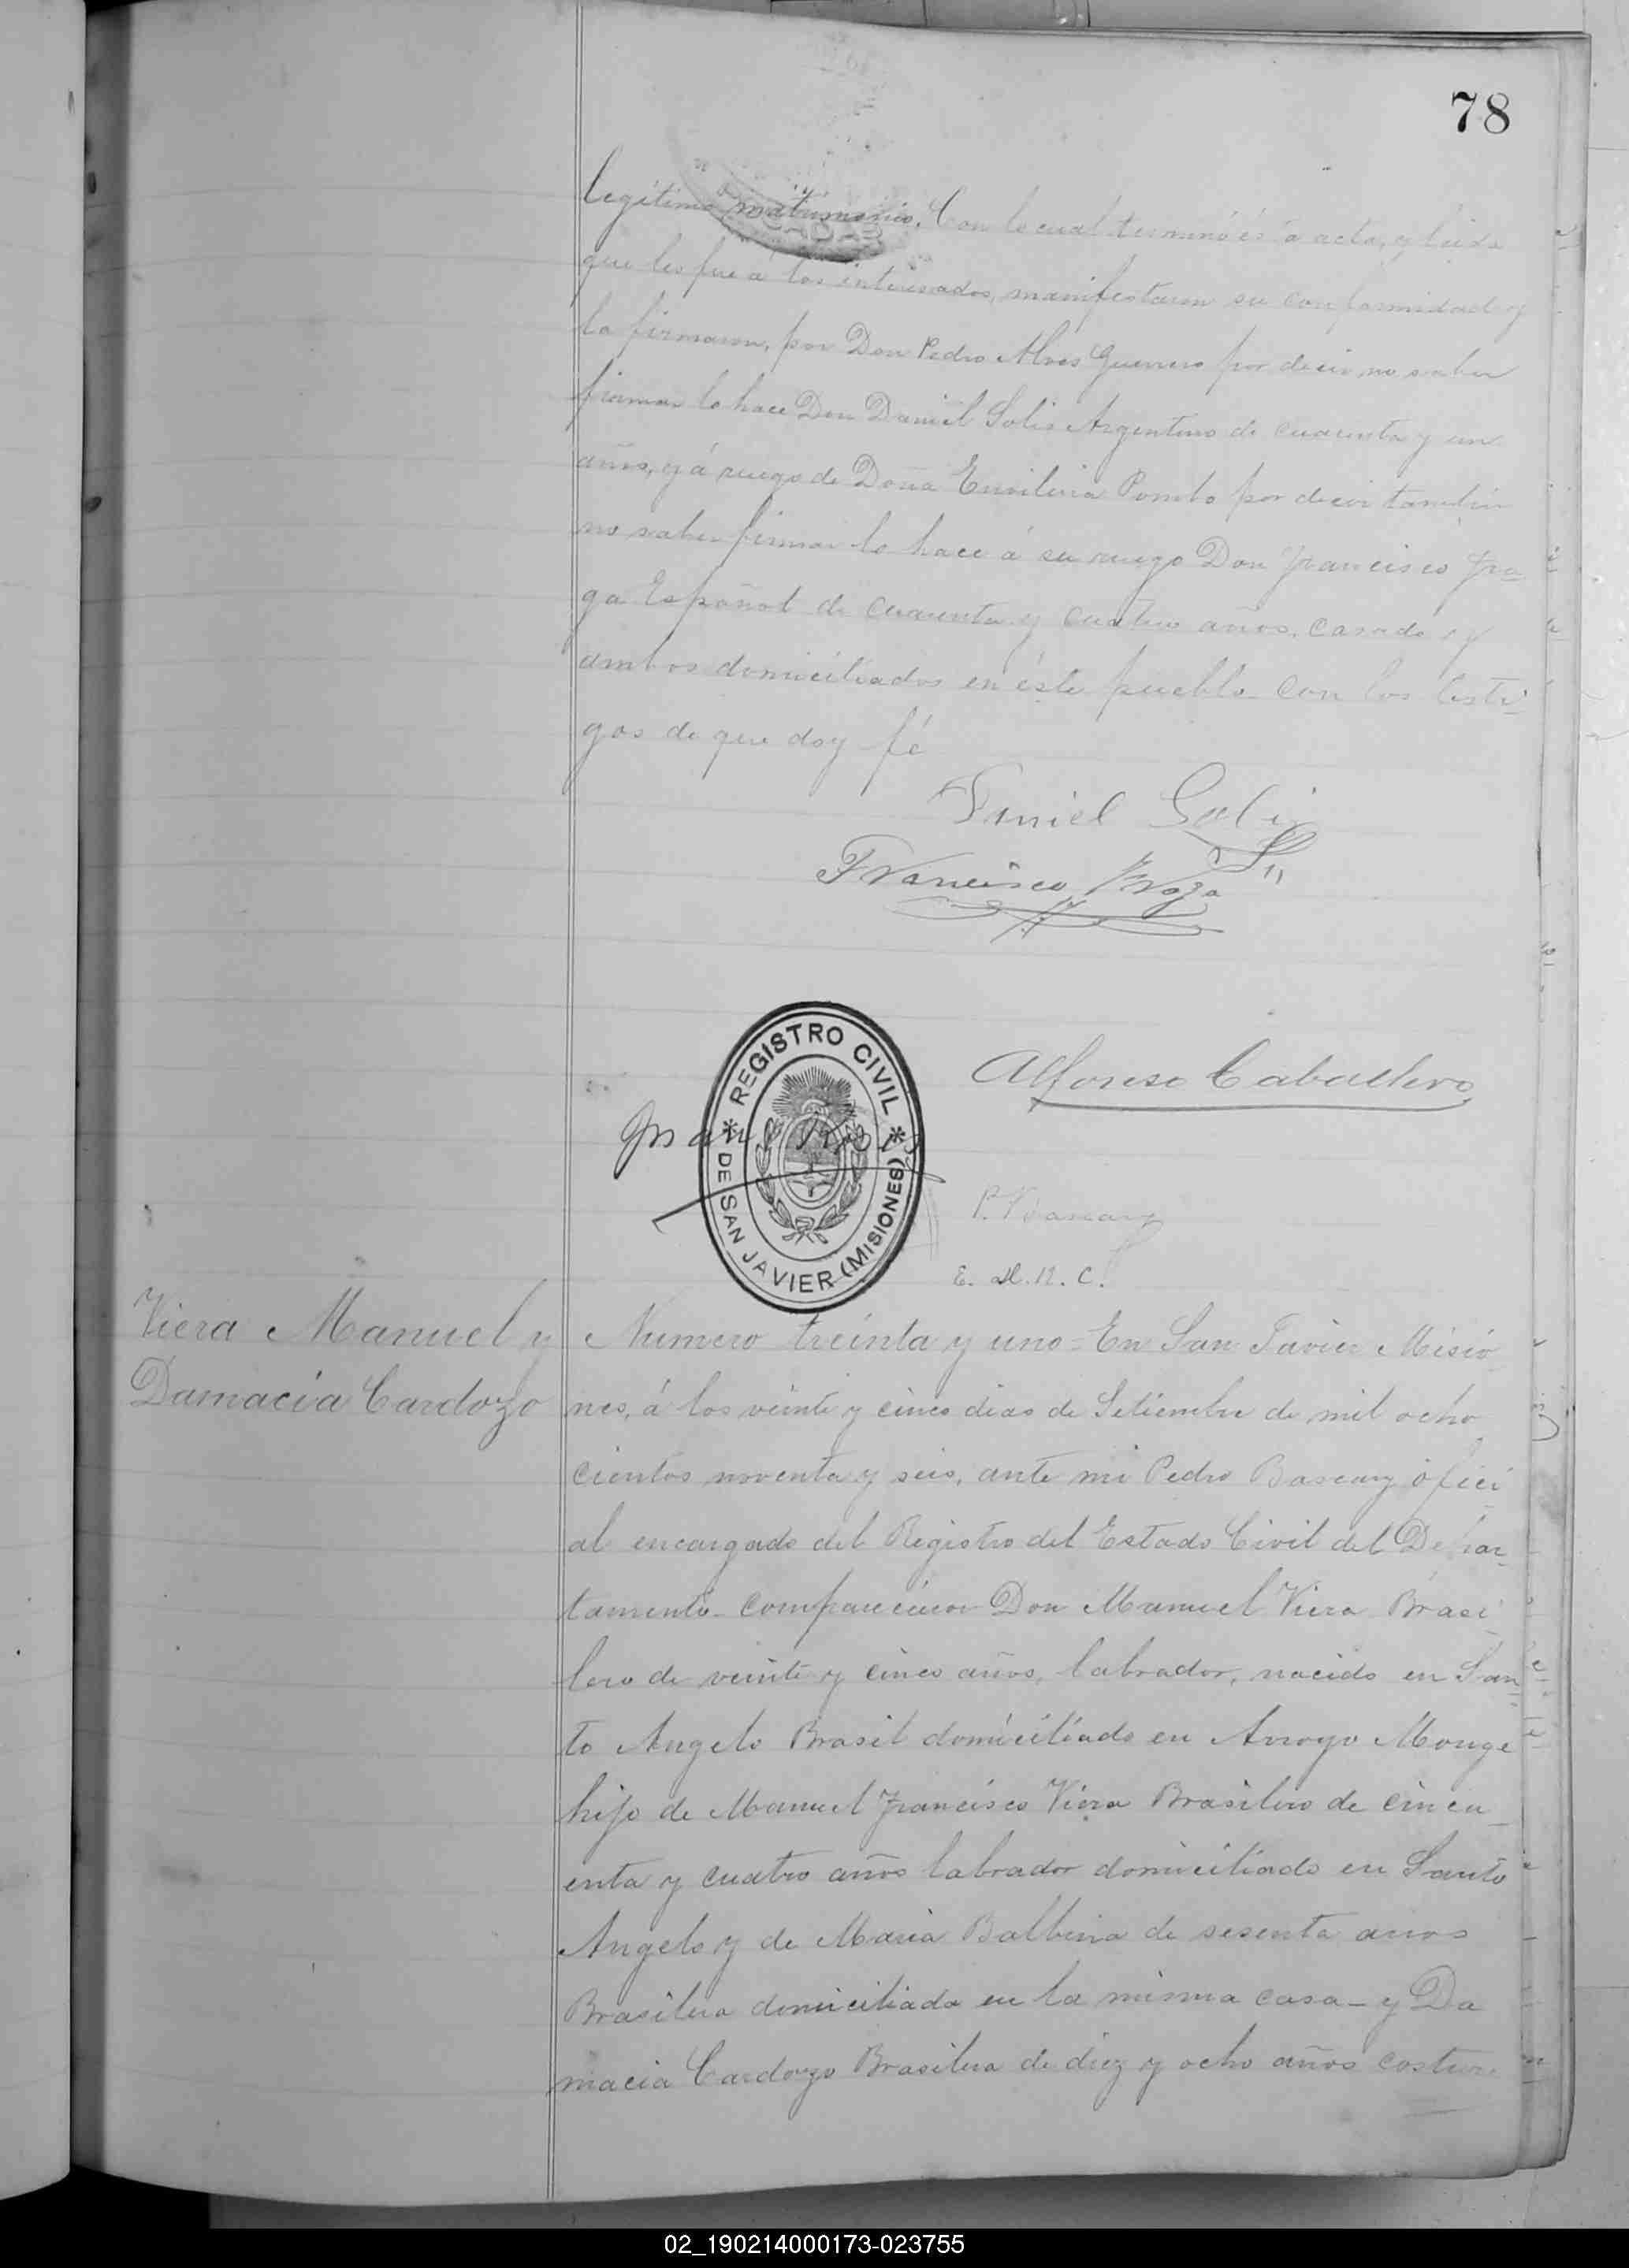 78
legítimo matrimonio. Con lo cual terminó ésta acta, y leida
que les fue á los interesados, manifestaron su conformidad y
la firmaron, por Don Pedro Alves Guerrero por decir no saber
firmar lo hace Don Daniel Solis Argentino de cuarenta y un
años, y á ruego de Doña Emiliria Pombo por decir tambien
no saber firmar lo hace á su ruego Don Francisco Fra
ga Español de cuarenta y cuatro años, casado y
ambos domiciliados en éste pueblo con los testi-
gos de que doy fé
Daniel Solis
Francisco Fraga
REGISTRO CIVIL
DE SAN JAVIER (MISIONES)
Alfonso Caballero
Juan
P. Bascary
E. del R. C.
Viera Manuel y
Damacia Cardozo
Numero treinta y uno = En San Javier Misio
nes, á los veinte y cinco dias de Setiembre de mil ocho
cientos noventa y seis, ante mi Pedro Bascary ofici
al encargado del Registro del Estado Civil del Depar-
tamento comparecieron Don Manuel Viera Brasi
lero de veinte y cinco años, labrador, nacido en San-
to Angelo Brasil domiciliado en Arroyo Monge
hijo de Manuel Francisco Viera Brasilero de cincu-
enta y cuatro años labrador domiciliado en Santo
Angelo y de Maria Balbina de sesenta anos
Brasilera domiciliada en la misma casa - y Da
macia Cardozo Brasilera de diez y ocho años costure
02_190214000173-023755